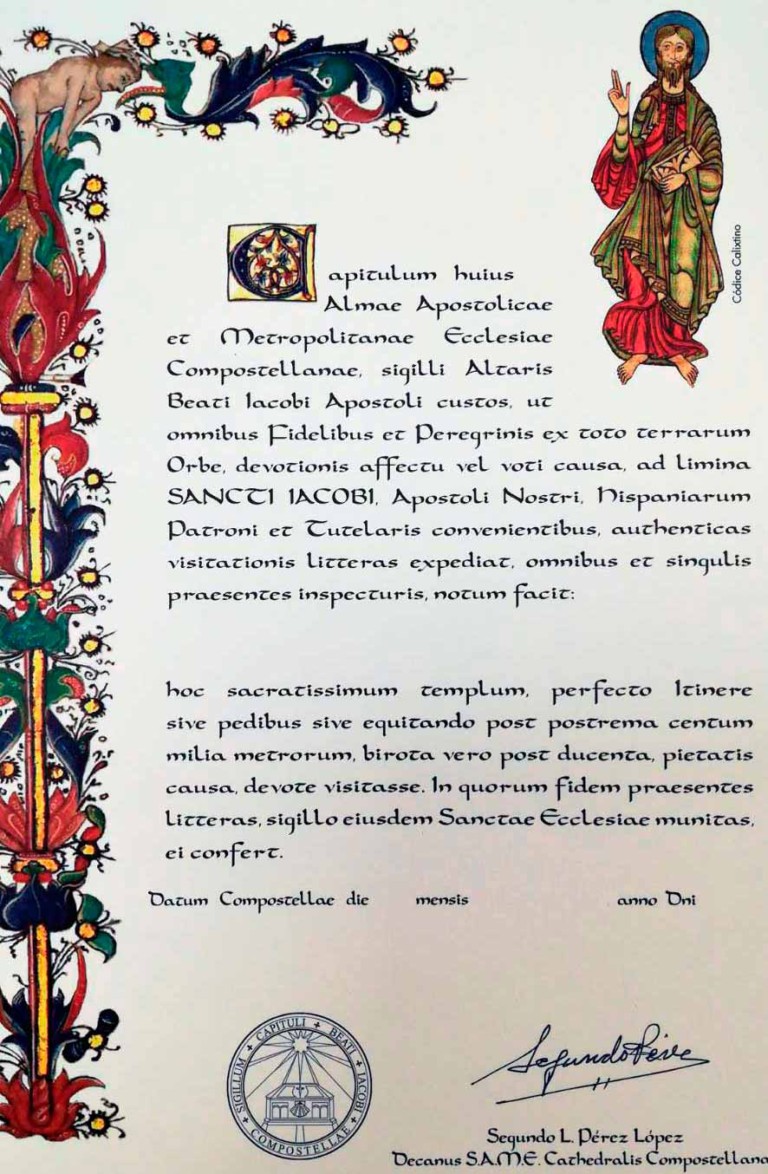 Capitulum huius
Almae Apostolicae
et Metropolitanae Ecclesiae
Compostellanae, sigilli Altaris
Beati Iacobi Apostoli custos, ut
omnibus Fidelibus et Peregrinis ex toto terrarum
Orbe, devotionis affectu vel voti causa, ad limina
SANCTI IACOBI, Apostoli Nostri, Hispaniarum
Patroni et Tutelaris convenientibus, authenticas
visitationis litteras expediat, omnibus et singulis
praesentes inspecturis, notum facit:
Códice Calixtino
hoc sacratissimum templum, perfecto Itinere
sive pedibus sive equitando post postrema centum
milia metrorum, birota vero post ducenta, pietatis
causa, devote visitasse. In quorum fidem praesentes
litteras, sigillo eiusdem Sanctae Ecclesiae munitas,
ei confert.
Datum Compostellae die mensis anno Dni
SIGILLUM + CAPITULI + BEATI + JACOBI + COMPOSTELLAE +
Segundo Pérez
Segundo L. Pérez López
Decanus S.A.M.E. Cathedralis Compostellana